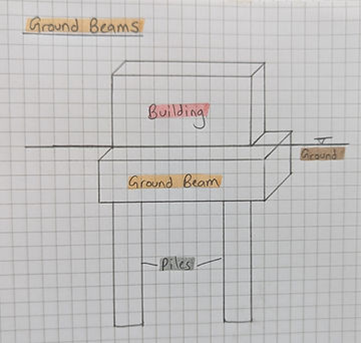 Ground Beams
Building
Ground
Ground Beam
Piles